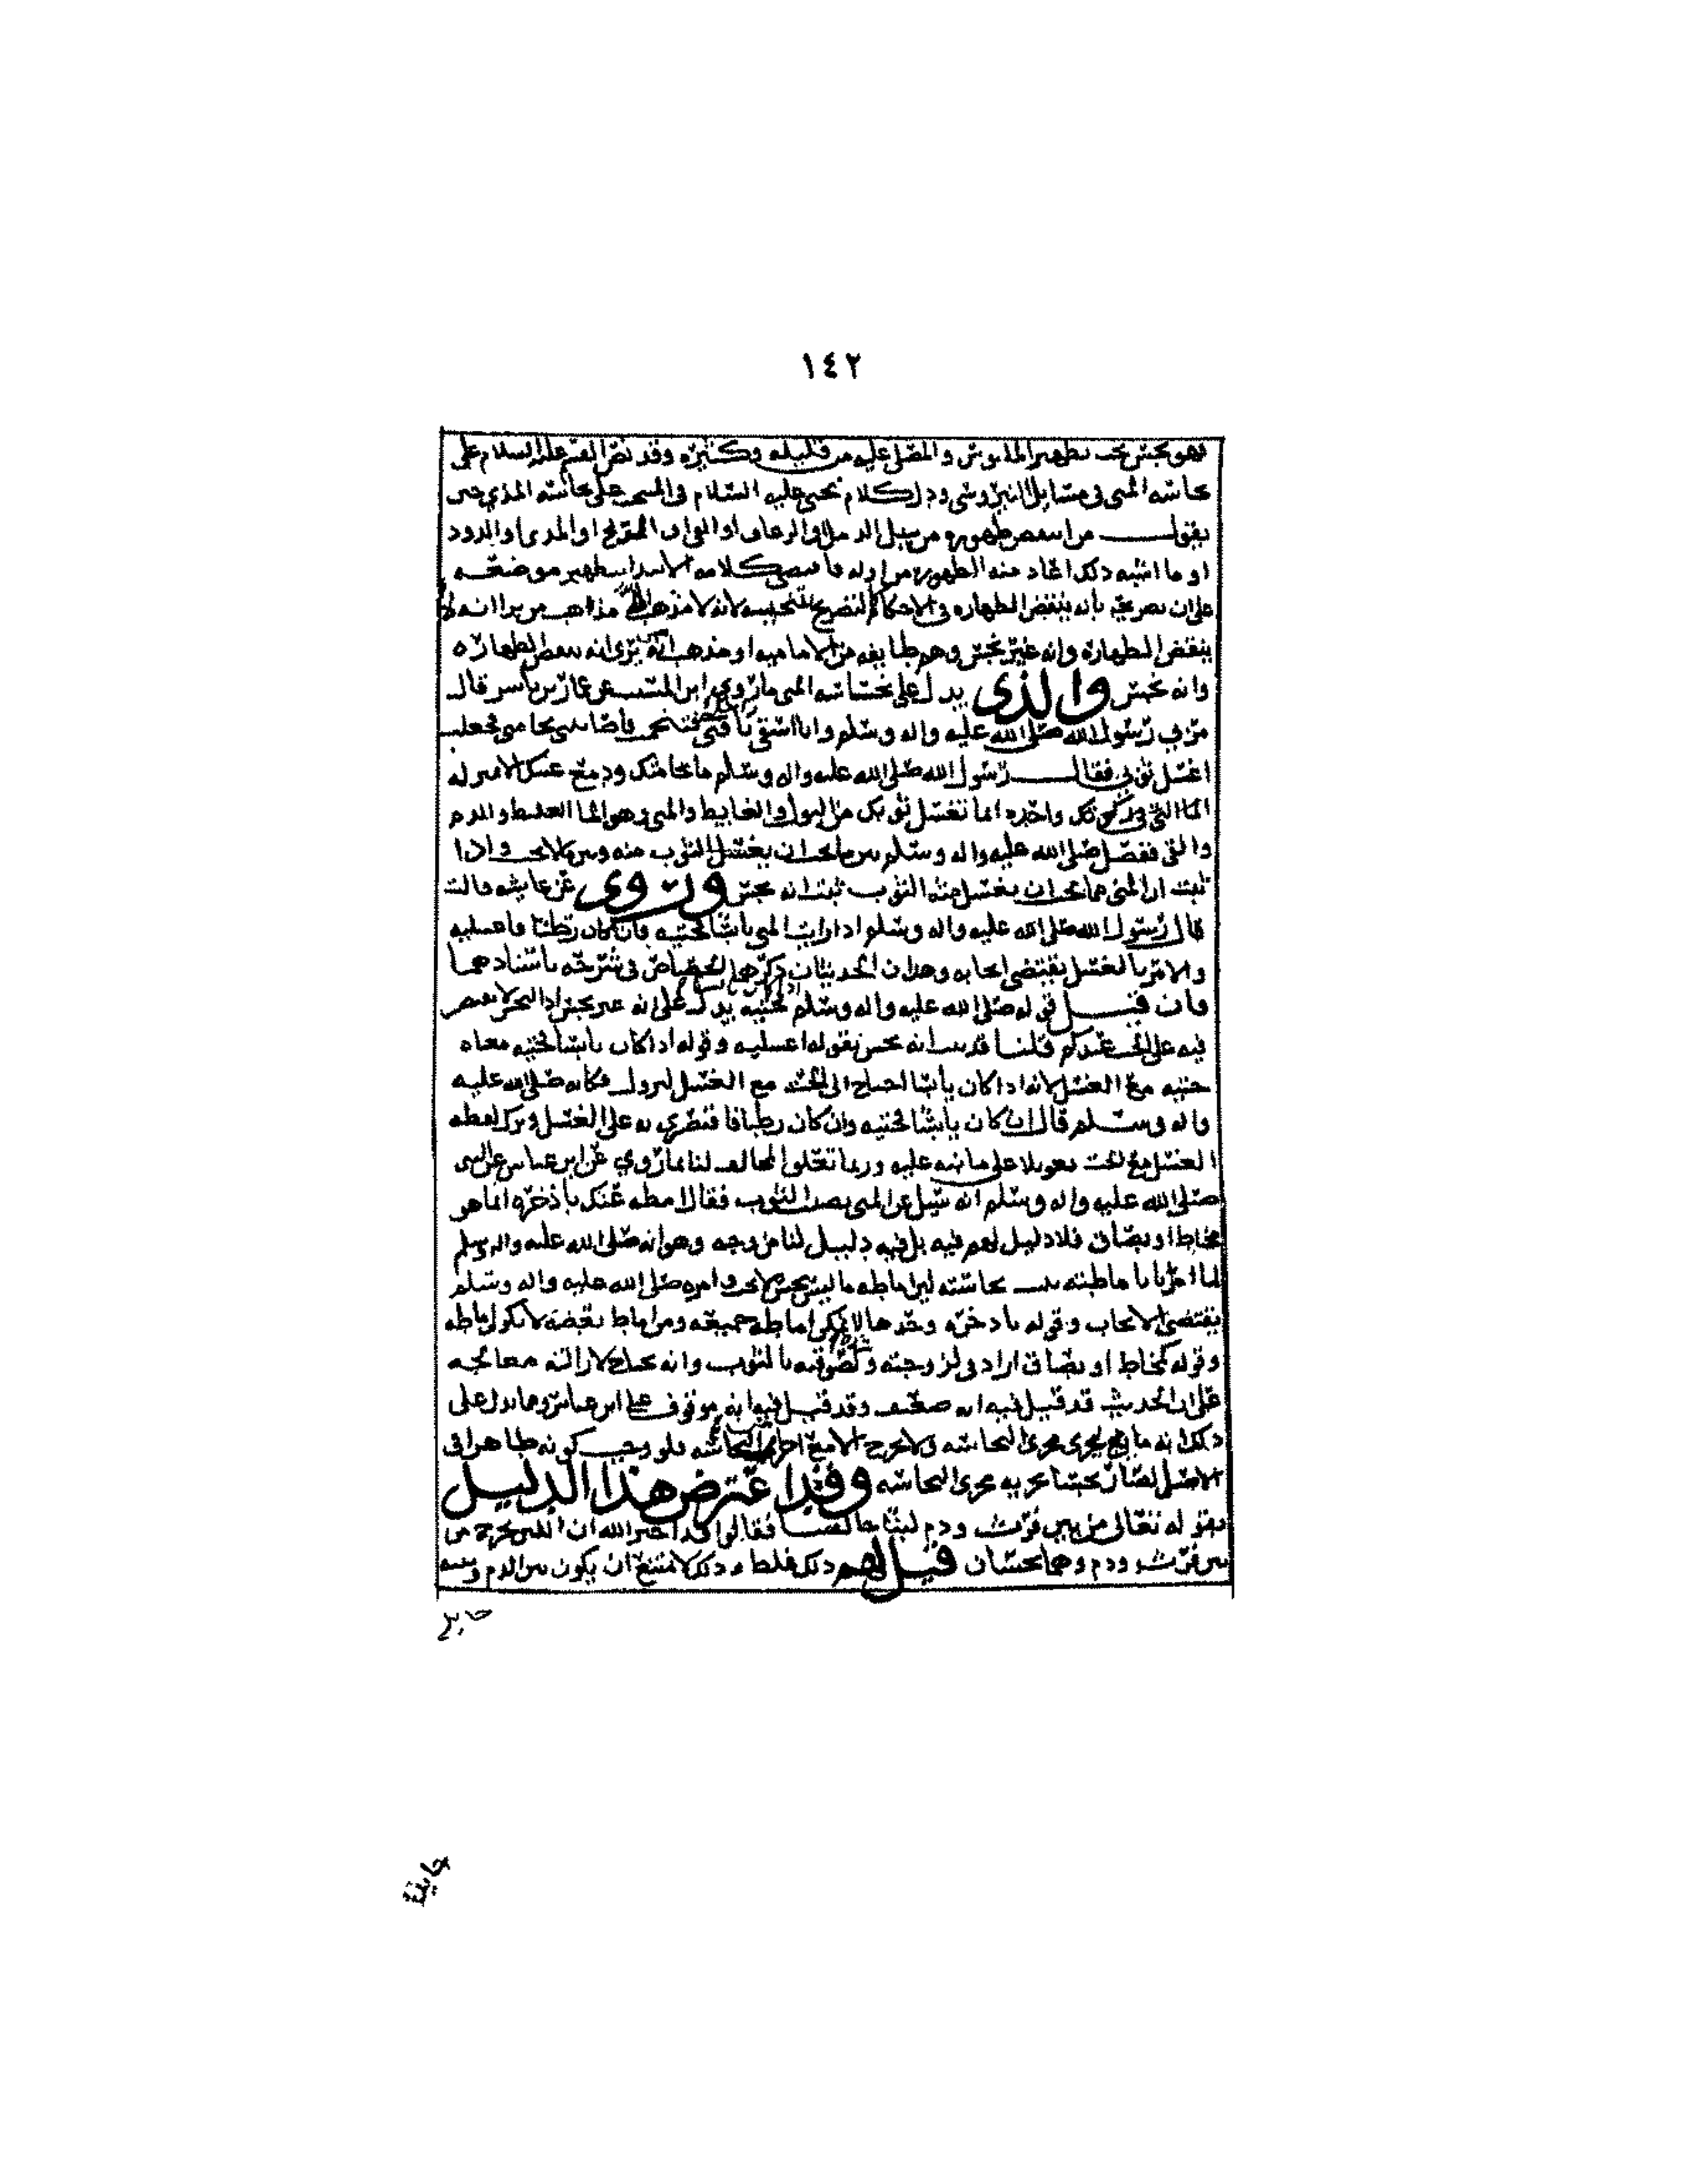 ١٤٢
فهو نجس يجب تطهير الملبوس والمصلى عليه من قليله وكثيره وقد نص القسم عليه السلام على
نجاسة المني في مسايل النيروسي ودل كلام يحيى عليه السلام في المسح على نجاسة المذي حين
يقول من انتقض طهوره من سبيل الدمل او الرعاف او القي او القيح او المذي او الدود
او ما اشبه ذلك اعاد منه الطهور من اوله فاقتضى كلامه الابتدا بتطهير موضعه
على ان تصريحه بانه ينقض الطهارة في الاحكام لتصريح بتنجيسه لانه لا مذهب الا مذاهب من يرا انه لا
ينقض الطهارة وانه غير نجس وهم طايفة من الامامية او مذهب انه يرى انه ينقض الطهارة
وانه نجس والذي يدل على نجاسة المني ما روي ابن المسيب عن عمار بن ياسر قال
مر بي رسول الله صلى الله عليه واله وسلم وانا اسقي ناقتي فتنخمت فاصابتني نخامتي فجعلت
اغسل ثوبي فقال رسول الله صلى الله عليه واله وسلم ما نخامتك ودمع عينيك الا بمنزلة
الما الذي في ركوتك واخبره انما تغسل ثوبك من البول والغايط والمني وهو الما الغليظ والدم
والقي ففصل صلى الله عليه واله وسلم بين ما يجب ان يغسل الثوب منه وبين ما لا يجب واذا
ثبت ان المني مما يجب ان يغسل منه الثوب ثبت انه نجس وروي عن عايشة قالت
قال رسول الله صلى الله عليه واله وسلم اذا رايت المني يابسا فحتيه وان كان رطبا فاغسليه
والامر بالغسل يقتضي ايجابه وهذان الحديثان ذكرهما الجصاص في شرحه باسنادهما
فان قيل قوله صلى الله عليه واله وسلم فحتيه يدل على انه غير نجس اذ النجس لا يقتصر
فيه على الحت عندكم قلنا قد بينا انه نجس بقوله اغسليه وقوله اذا كان يابسا فحتيه معناه
حتيه مع الغسل لانه اذا كان يابسا احتاج الى الحت مع الغسل ليزول فكانه صلى الله عليه
واله وسلم قال ان كان يابسا فحتيه وان كان رطبا فاقتصري به على الغسل وترك لفظة
الغسل مع الحت تعويلا على ما نبه عليه وربما تعلق المخالف لنا بما روي عن ابن عباس عن النبي
صلى الله عليه واله وسلم انه سيل عن المني يصيب الثوب فقال امطه عنك باذخرة انما هو
مخاط او بصاق فلا دليل لهم فيه بل فيه دليل لنا من وجه وهو انه صلى الله عليه واله وسلم
لما امرنا باماطته ثبت نجاسته لان اماطة ما ليس بنجس لا يجب وامره صلى الله عليه واله وسلم
يقتضي الايجاب وقوله باذخرة وحدها لا يمكن اماطة جميعه ومن اماط بعضه لا يكون اماطه
وقوله كمخاط او بصاق اراد في لزوجته ولصوقه بالثوب وانه يحتاج لازالته معالجة
على ان الحديث قد قيل فيه انه ضعيف وقد قيل فيه انه موقوف على ابن عباس ومما يدل على
ذلك انه مايع يجري مجرى النجاسة ولا يخرج الا مع اجزا النجاسة فلو وجب كونه طاهرا في
الاصل لصار نجسا بجريه مجرى النجاسة وقد اعترض هذا الدليل
بقوله تعالى من بين فرث ودم لبنا خالصا فقالوا قد اخبر الله ان اللبن يخرج من
بين فرث ودم وهما نجسان قيل لهم ذلك غلط وذلك لا يمتنع ان يكون بين الدم وبينه
حايل
حايل